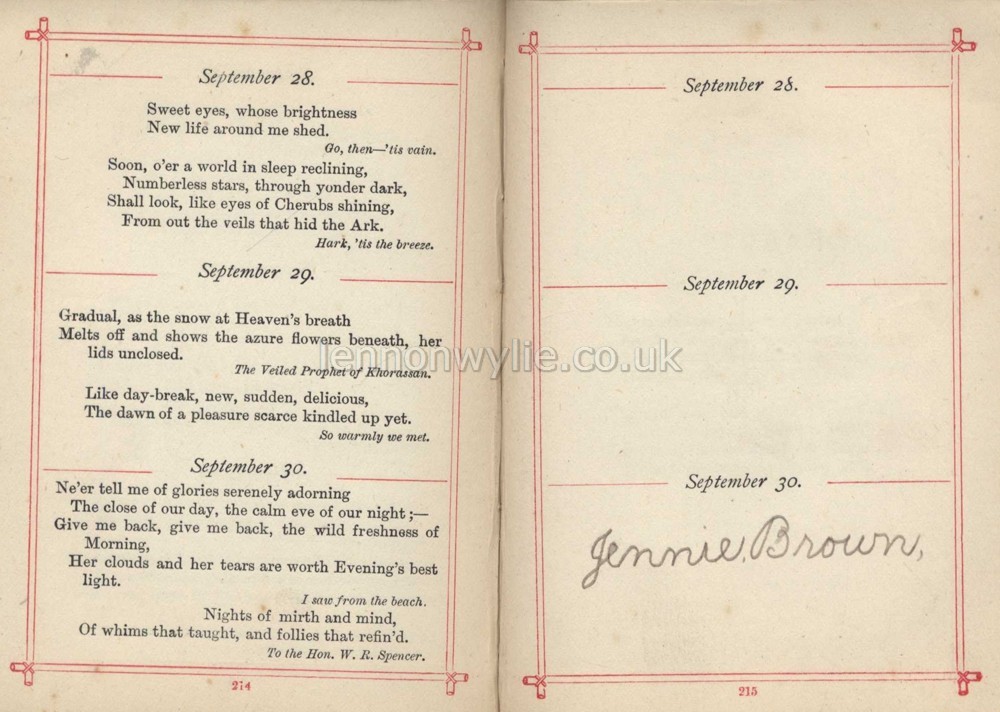 September 28.
Sweet eyes, whose brightness
New life around me shed.
Go, then—'tis vain.
Soon, o'er a world in sleep reclining,
Numberless stars, through yonder dark,
Shall look, like eyes of Cherubs shining,
From out the veils that hid the Ark.
Hark, 'tis the breeze.
September 29.
Gradual, as the snow at Heaven's breath
Melts off and shows the azure flowers beneath, her
lids unclosed.
The Veiled Prophet of Khorassan.
Like day-break, new, sudden, delicious,
The dawn of a pleasure scarce kindled up yet.
So warmly we met.
September 30.
Ne'er tell me of glories serenely adorning
The close of our day, the calm eve of our night;—
Give me back, give me back, the wild freshness of
Morning,
Her clouds and her tears are worth Evening's best
light.
I saw from the beach.
Nights of mirth and mind,
Of whims that taught, and follies that refin'd.
To the Hon. W. R. Spencer.
214
September 28.
September 29.
September 30.
Jennie, Brown,
215
lennonwylie.co.uk